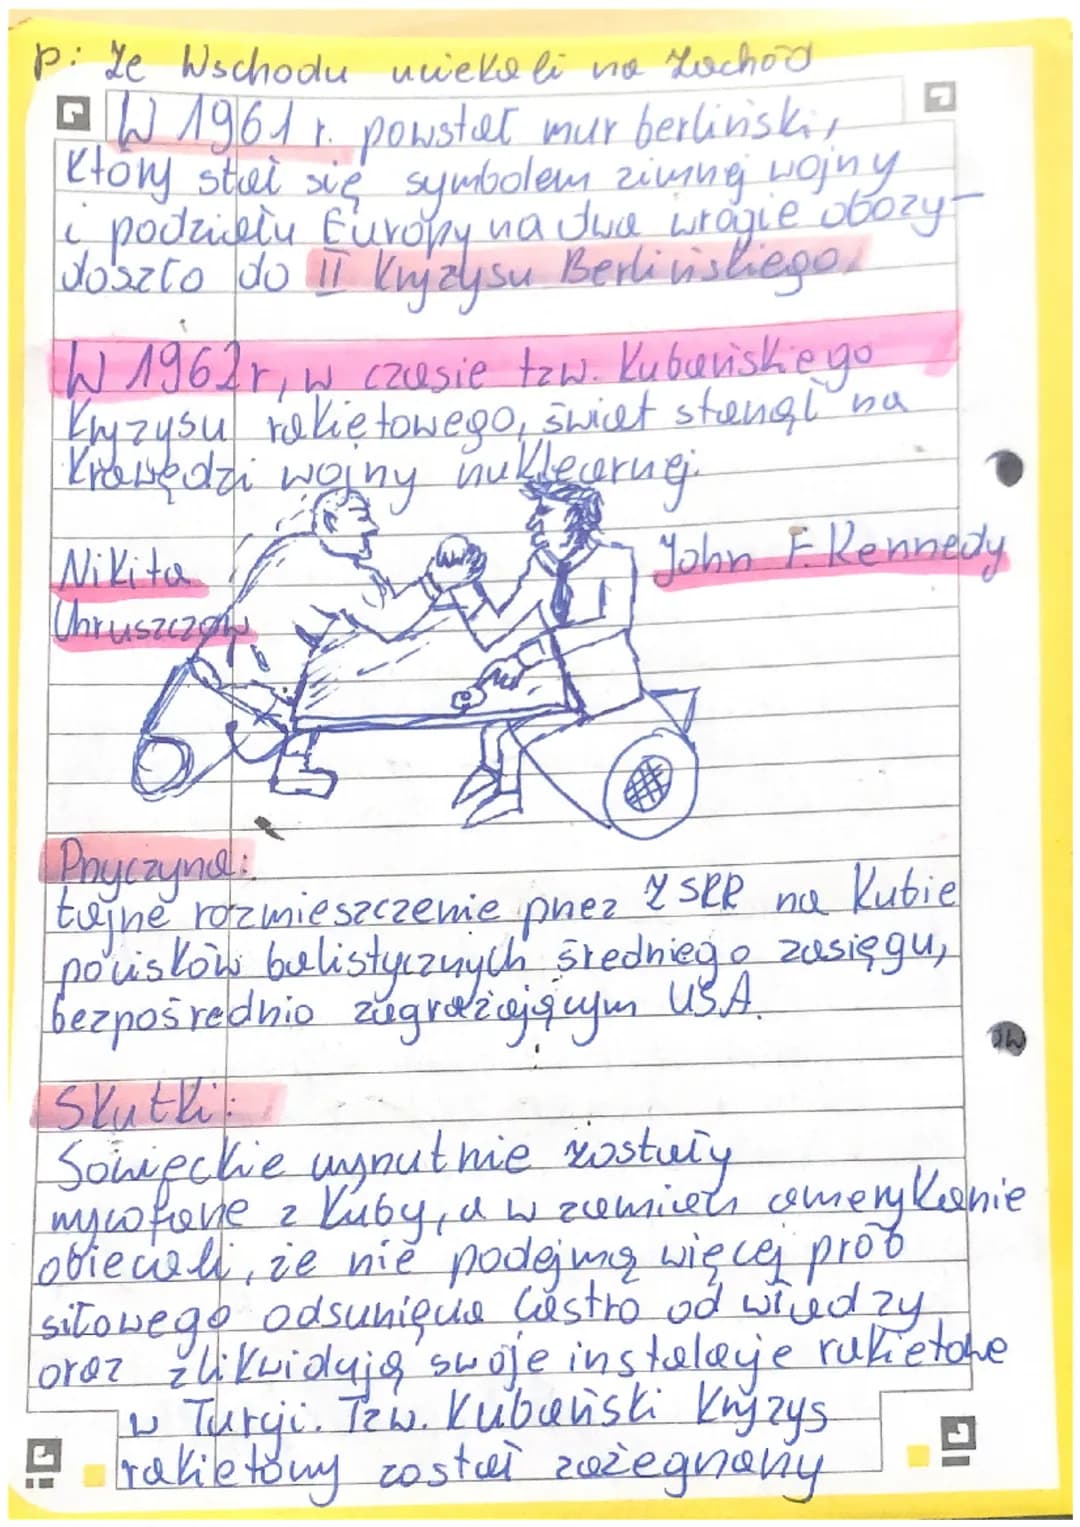 p: Ze Wschodu uciekali na Zachód
W 1961 r. powstał mur berliński,
który stał się symbolem zimnej wojny
i podziału Europy na dwa wrogie obozy -
doszło do II Kryzysu Berlińskiego.
W 1962r, w czasie tzw. Kubańskiego
Kryzysu rakietowego, świat stanął na
Krawędzi wojny nuklearnej.
Nikita
Chruszczow
John F. Kennedy
Przyczyna:
tajne rozmieszczenie przez ZSRR na Kubie
pocisków balistycznych średniego zasięgu,
bezpośrednio zagrażającym USA.
Skutki:
Sowieckie wyrzutnie zostały
wycofane z Kuby, a w zamian amerykanie
obiecali, że nie podejmą więcej prób
siłowego odsunięcia Castro od władzy
oraz zlikwidują swoje instalacje rakietowe
w Turcji. Tzw. Kubański Kryzys
rakietowy został zażegnany